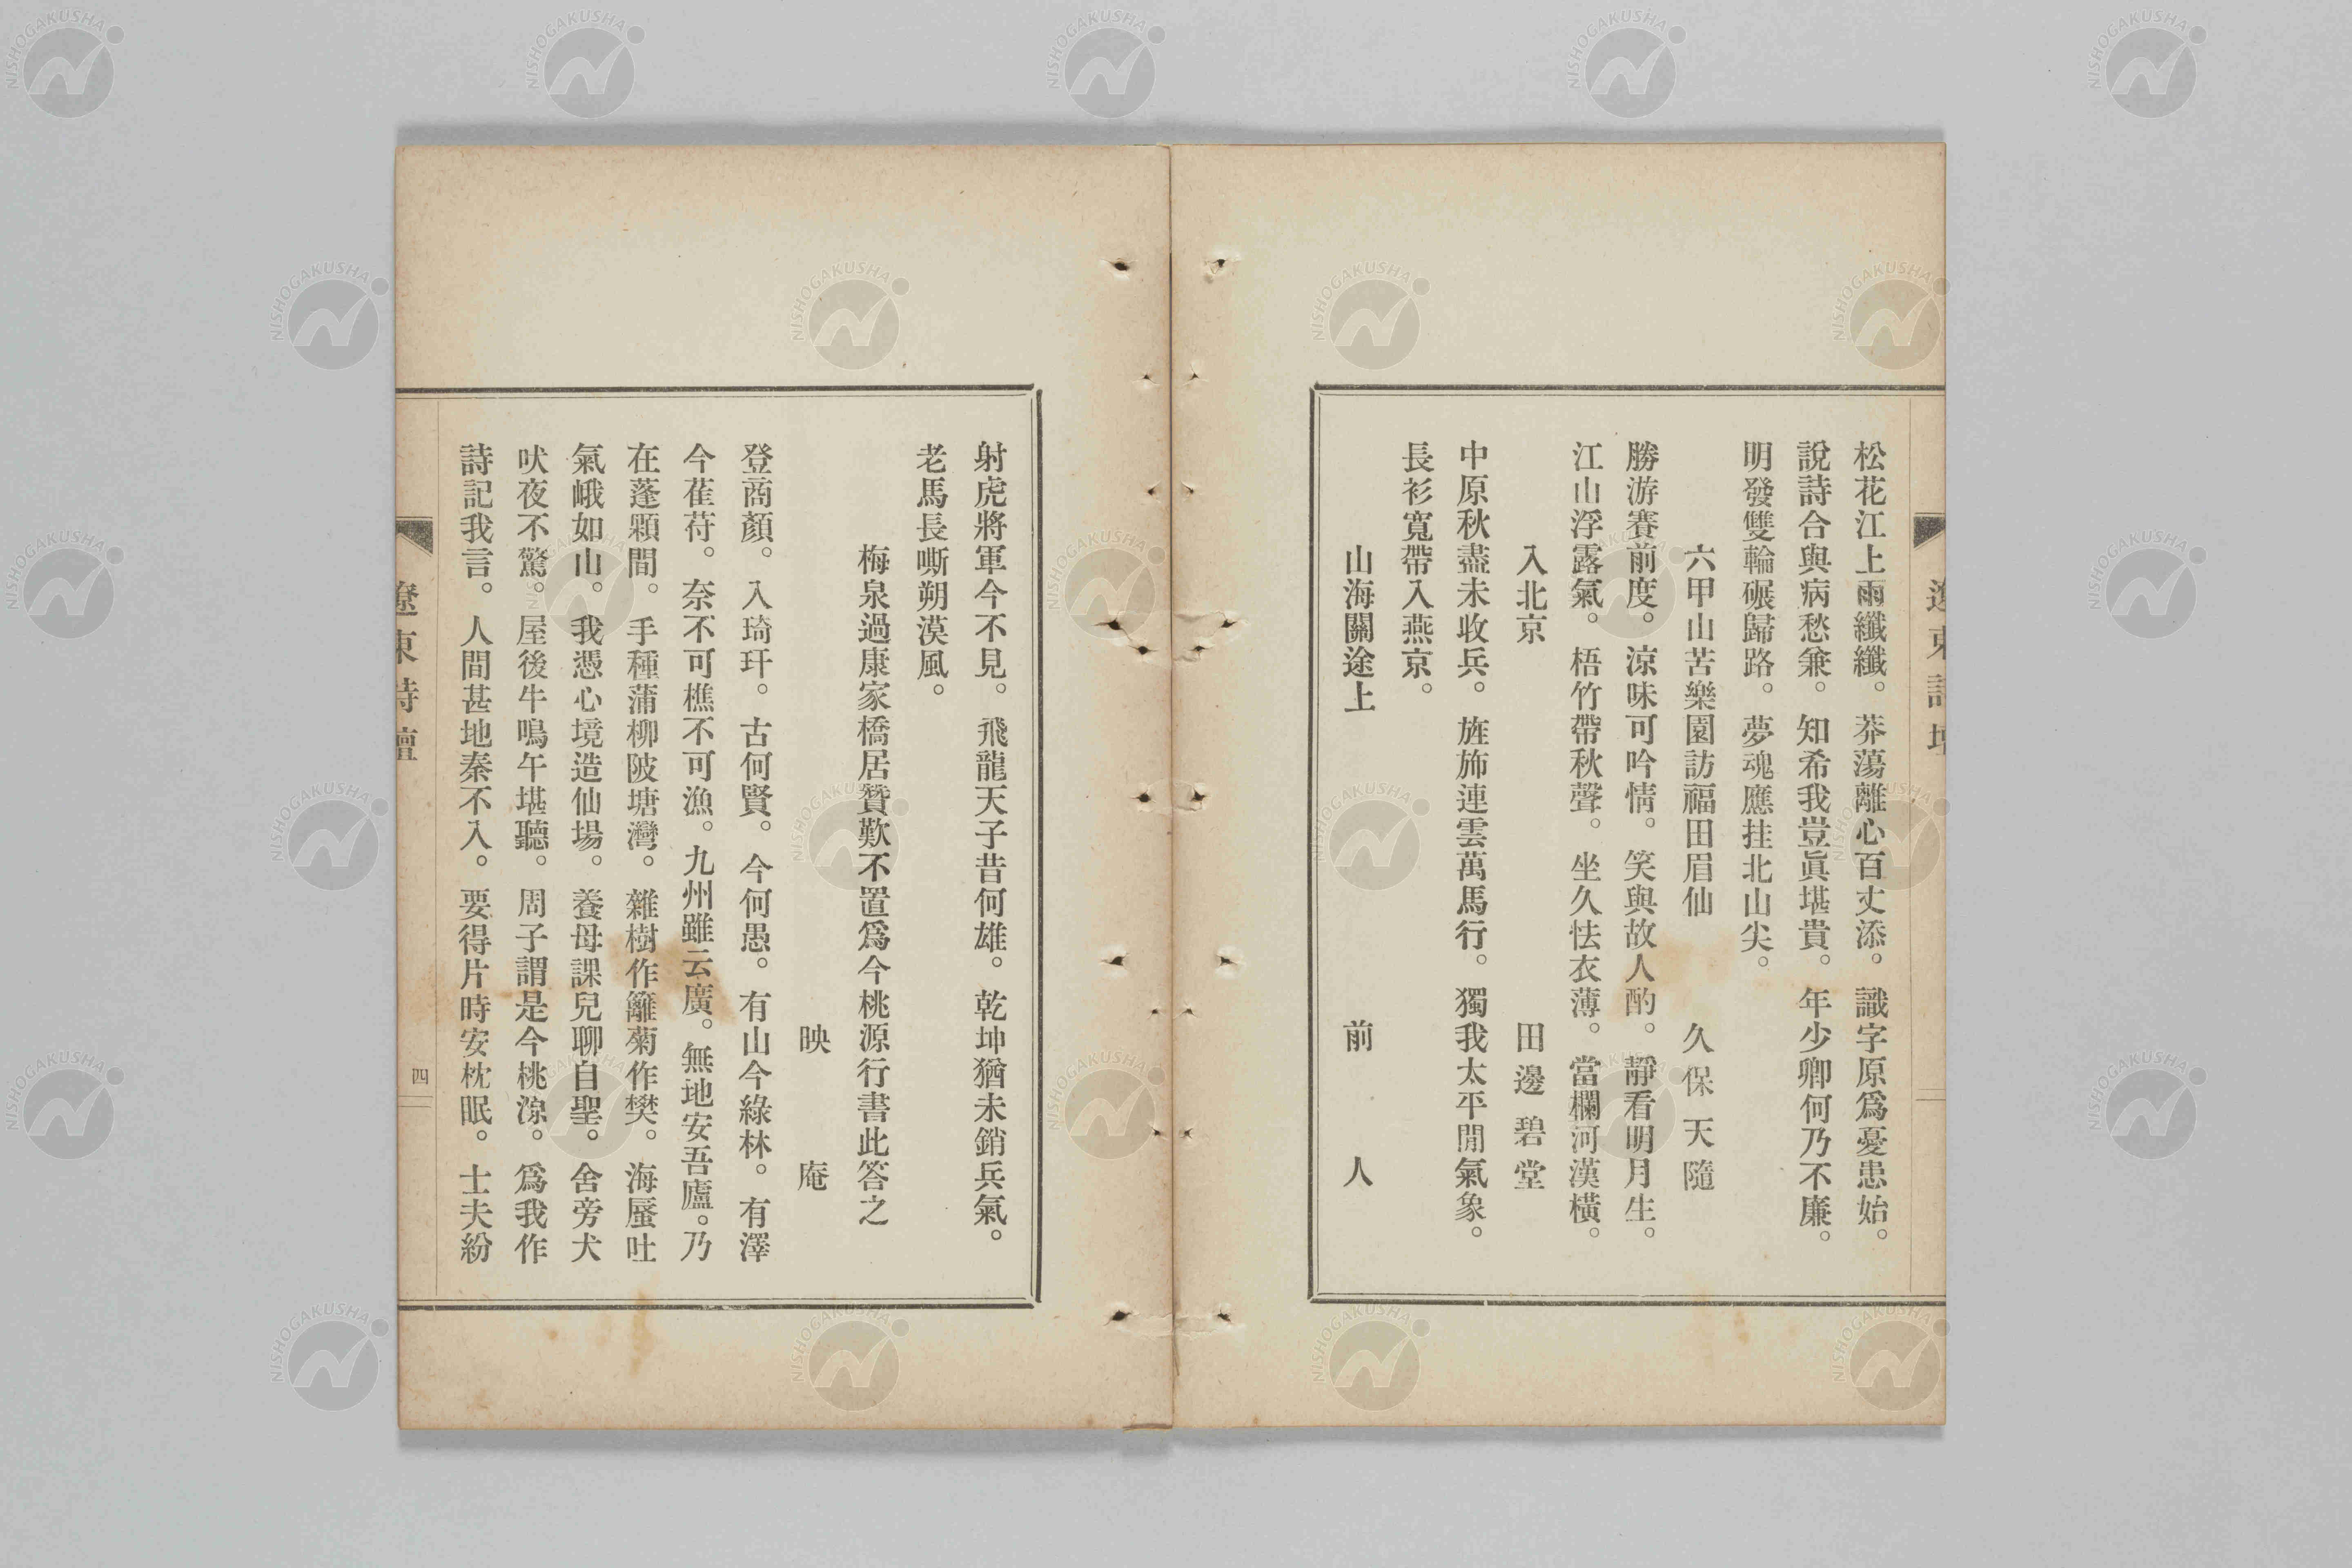 松花江上雨纖纖。莽蕩離心百丈添。識字原爲憂患始。
說詩合與病愁兼。知希我豈眞堪貴。年少卿何乃不廉。
明發雙輪碾歸路。夢魂應挂北山尖。
六甲山苦樂園訪福田眉仙　久保天隨
勝游賽前度。涼味可吟情。笑與故人酌。靜看明月生。
江山浮露氣。梧竹帶秋聲。坐久怯衣薄。當欄河漢橫。
入北京　田邊碧堂
中原秋盡未收兵。旌旆連雲萬馬行。獨我太平閒氣象。
長衫寬帶入燕京。
山海關途上　前人
射虎將軍今不見。飛龍天子昔何雄。乾坤猶未銷兵氣。
老馬長嘶朔漠風。
梅泉過康家橋居贊歎不置爲今桃源行書此答之
映庵
登商顏。入琦玕。古何賢。今何愚。有山今綠林。有澤
今萑苻。奈不可樵不可漁。九州雖云廣。無地安吾廬。乃
在蓬顆間。手種蒲柳陂塘灣。雜樹作籬菊作樊。海蜃吐
氣峨如山。我憑心境造仙場。養母課兒聊自聖。舍旁犬
吠夜不驚。屋後牛鳴午堪聽。周子謂是今桃源。爲我作
詩記我言。人間甚地秦不入。要得片時安枕眠。士夫紛
遼東詩壇
四
NISHOGAKUSHA